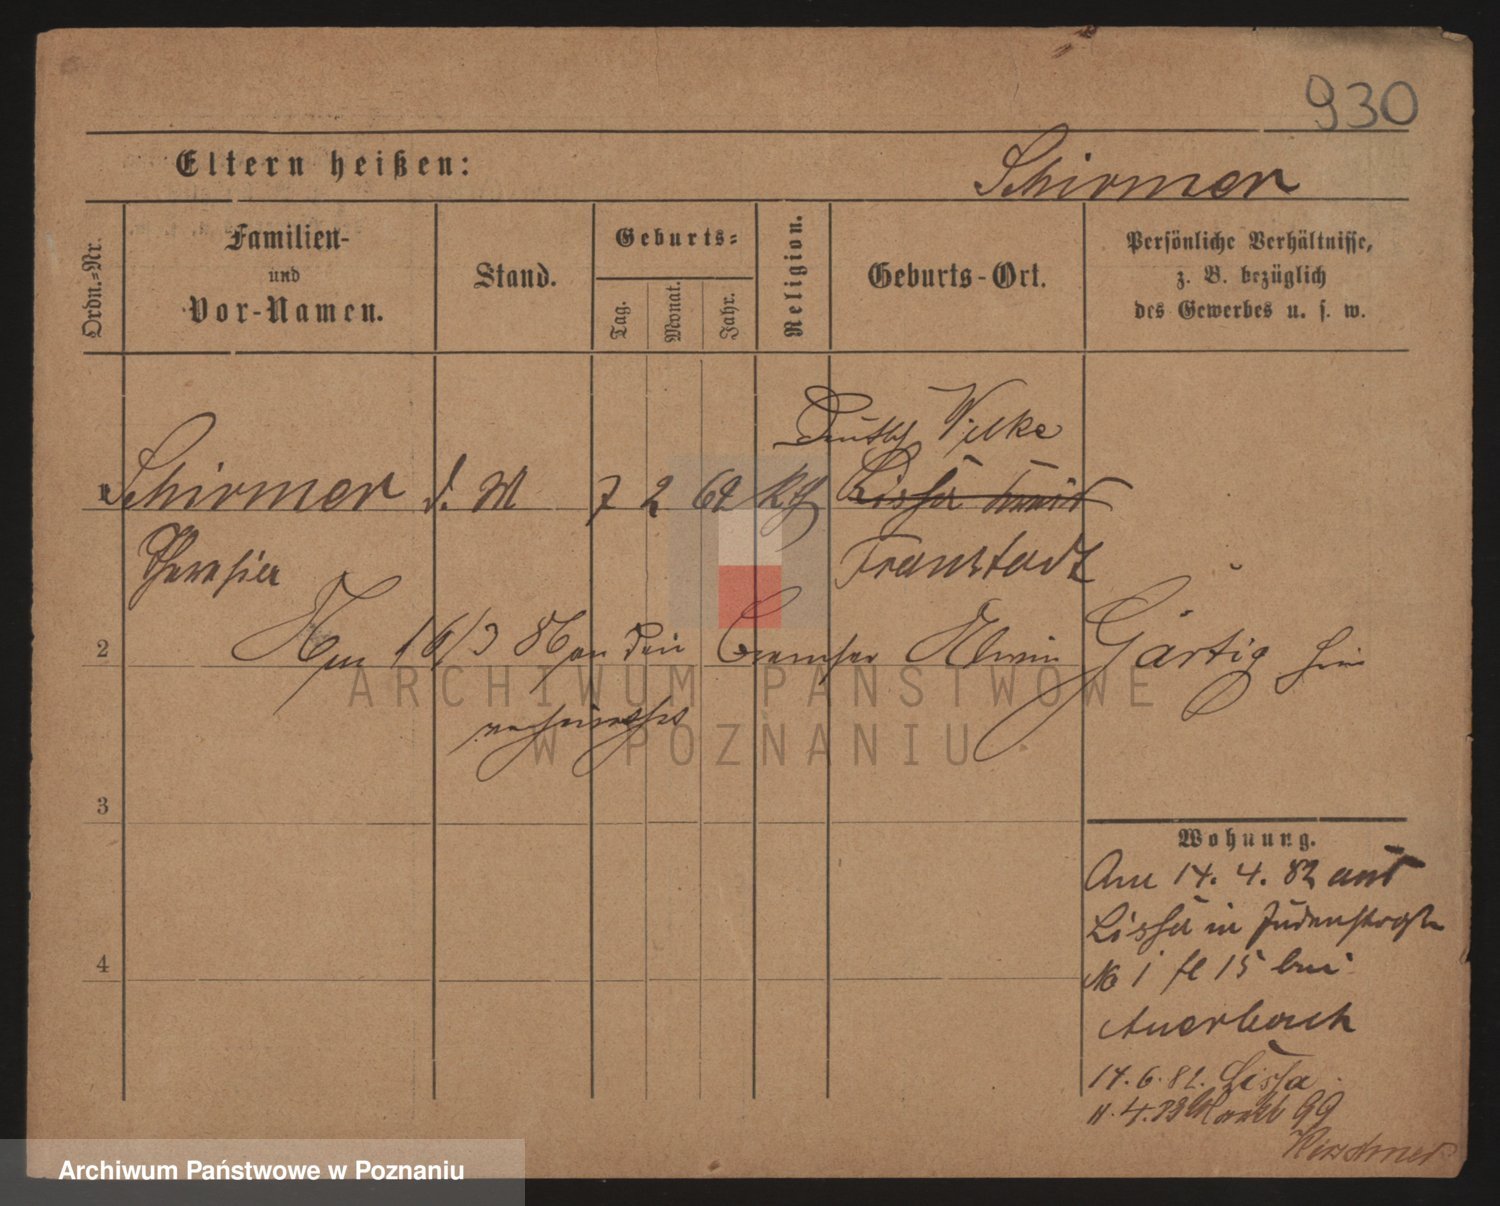 930
Eltern heißen: Schirmer
Ordn.-Nr.
Familien-
und
Vor-Namen.
Stand.
Geburts-
Tag.
Monat.
Jahr.
Religion.
Geburts-Ort.
Persönliche Verhältnisse,
z. B. bezüglich
des Gewerbes u. s. w.
Deutsch Wilke
Schirmer d. M 7 2 62 kth Lissa
Theresia Fraustadt
2 Am 16/3 86 an den Gärtig
ARCHIWUM PAŃSTWOWE
W POZNANIU
3
Wohnung.
Am 14. 4. 82 aus
Lissa in Judenstraße
4
No 1 15 bei
Auerbach
14. 6. 82. Lissa
11. 4. 83 Markt 99
Archiwum Państwowe w Poznaniu